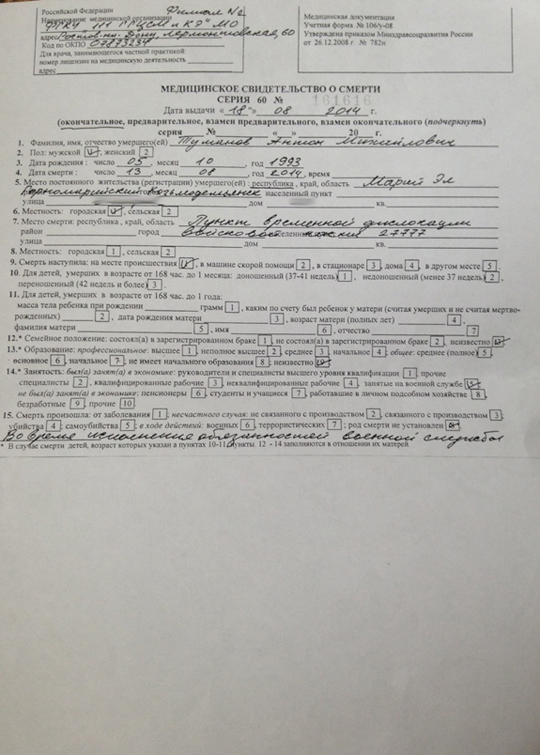 Российской Федерации Филиал №2
Наименование медицинской организации
ФГКУ 111 ГГЦСМ и КЭ МО
адрес Ростов-на-Дону, Лермонтовская, 60
Код по ОКПО
Для врача, занимающегося частной практикой:
номер лицензии на медицинскую деятельность
адрес
Медицинская документация
Учетная форма № 106/у-08
Утверждена приказом Минздравсоцразвития России
от 26.12.2008 г. № 782н
МЕДИЦИНСКОЕ СВИДЕТЕЛЬСТВО О СМЕРТИ
СЕРИЯ 60 № 161616
Дата выдачи « 18 » 08 2014 г.
(окончательное, предварительное, взамен предварительного, взамен окончательного (подчеркнуть)
серия № « » 20 г.
1. Фамилия, имя, отчество умершего(ей) Туманов Антон Михайлович
2. Пол: мужской 1, женский 2
3. Дата рождения : число 05, месяц 10, год 1993
4. Дата смерти : число 13, месяц 08, год 2014, время
5. Место постоянного жительства (регистрации) умершего(ей) : республика, край, область Марий Эл
Горномарийский Козьмодемьянск населенный пункт
улица дом кв.
6. Местность: городская 1, сельская 2
7. Место смерти: республика, край, область Пункт временной дислокации
район город войсковой части 27777
улица дом кв.
8. Местность: городская 1, сельская 2
9. Смерть наступила: на месте происшествия 1, в машине скорой помощи 2, в стационаре 3, дома 4, в другом месте 5.
10. Для детей, умерших в возрасте от 168 час. до 1 месяца: доношенный (37-41 недель) 1, недоношенный (менее 37 недель) 2,
переношенный (42 недель и более) 3.
11. Для детей, умерших в возрасте от 168 час. до 1 года:
масса тела ребенка при рождении грамм 1, каким по счету был ребенок у матери (считая умерших и не считая мертво-
рожденных) 2, дата рождения матери 3, возраст матери (полных лет) 4,
фамилия матери 5, имя 6, отчество 7
12.* Семейное положение: состоял(а) в зарегистрированном браке 1, не состоял(а) в зарегистрированном браке 2, неизвестно 3
13.* Образование: профессиональное: высшее 1, неполное высшее 2, среднее 3, начальное 4; общее: среднее (полное) 5,
основное 6, начальное 7; не имеет начального образования 8; неизвестно 9
14.* Занятость: был(а) занят(а) в экономике: руководители и специалисты высшего уровня квалификации 1, прочие
специалисты 2, квалифицированные рабочие 3, неквалифицированные рабочие 4, занятые на военной службе 5;
не был(а) занят(а) в экономике: пенсионеры 6, студенты и учащиеся 7, работавшие в личном подсобном хозяйстве 8,
безработные 9, прочие 10
15. Смерть произошла: от заболевания 1; несчастного случая: не связанного с производством 2, связанного с производством 3;
убийства 4; самоубийства 5; в ходе действий: военных 6, террористических 7; род смерти не установлен 8
Во время исполнения обязанностей военной службы
* В случае смерти детей, возраст которых указан в пунктах 10-11, пункты 12 - 14 заполняются в отношении их матерей